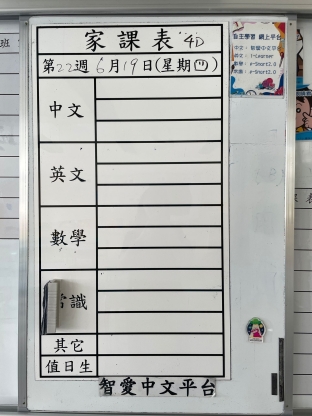 家課表 4D
第22週6月19日(星期四)
中文
英文
數學
常識
其它
值日生
智愛中文平台
自主學習 網上平台
中文：智愛中文平台
英文：i-Learner